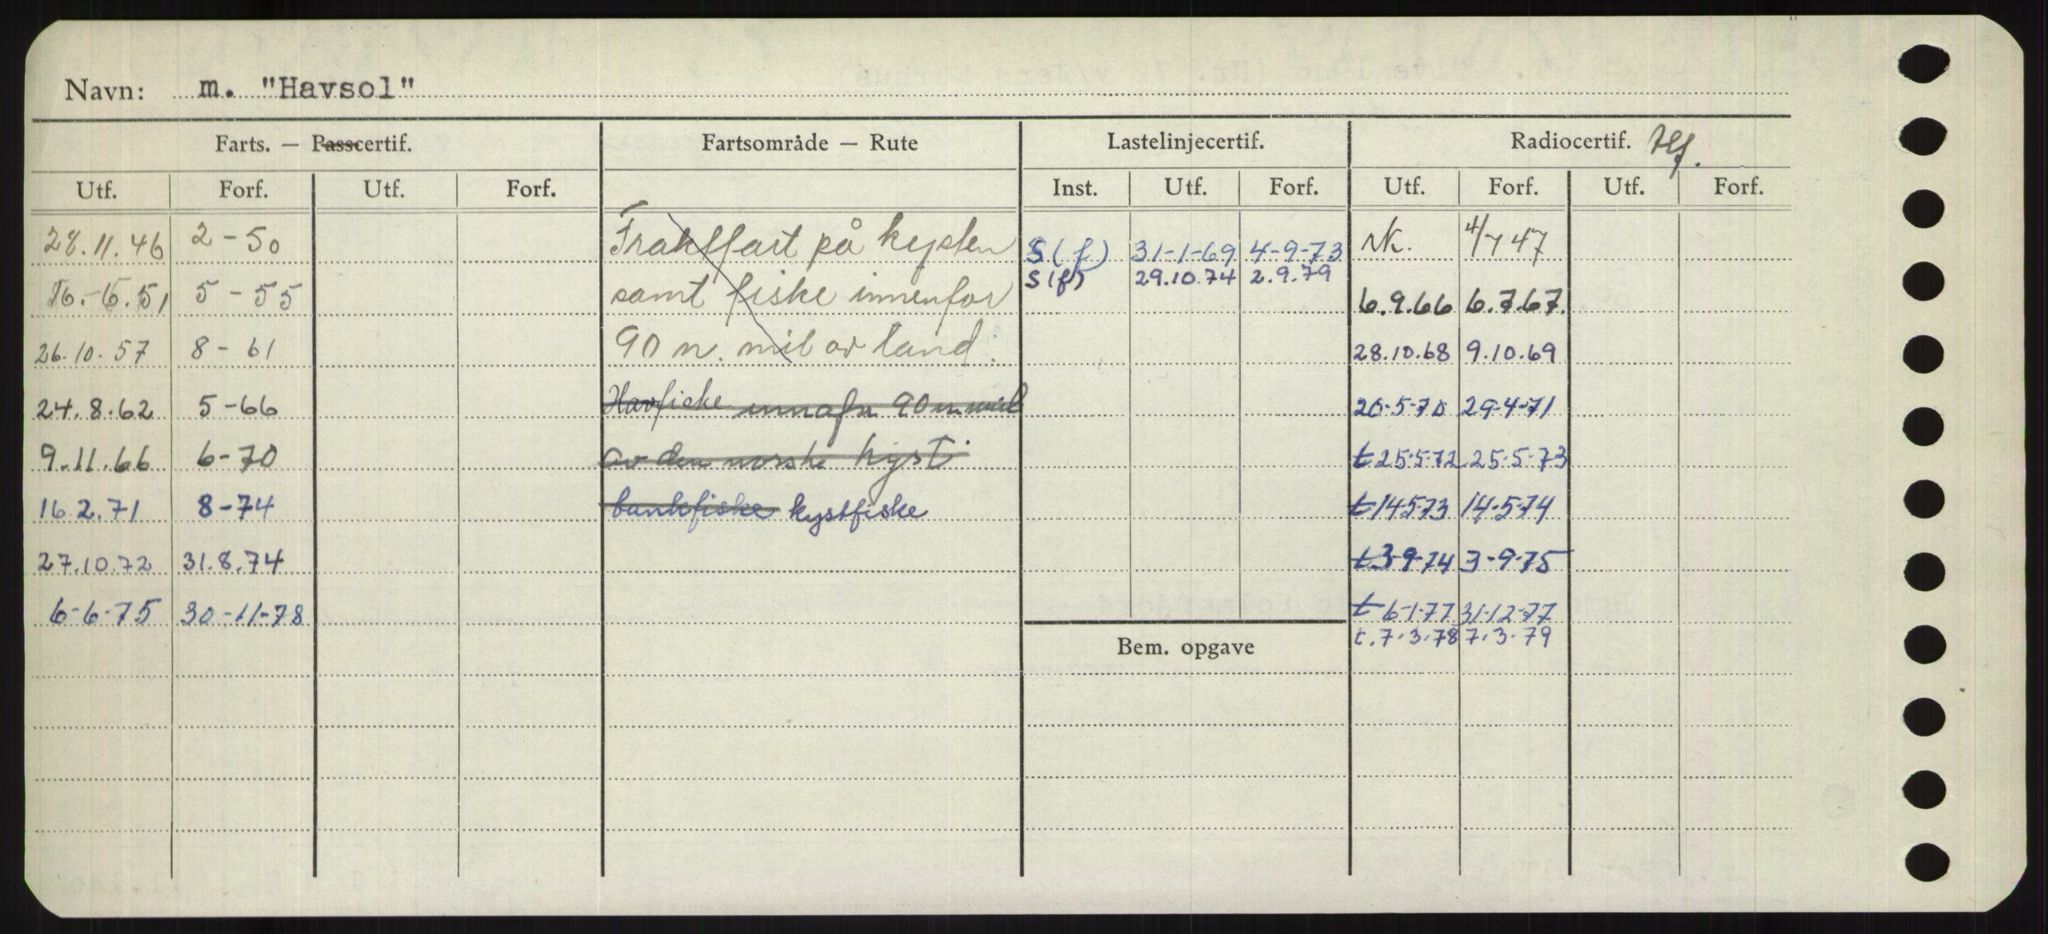 Navn: m. "Havsol"
Farts. — Passcertif. Fartsområde — Rute Lastelinjecertif. Radiocertif. tlf.
Utf. Forf. Utf. Forf. Inst. Utf. Forf. Utf. Forf. Utf. Forf.
28.11.46 2-50 Fraktfart på kysten S(f) 31-1-69 4-9-73 4/7 47
S(f) 29.10.74 2.9.79
5-55 samt fiske innenfor 6.9.66 6.7.67.
26.10.57 8-61 90 n. mil av land. 28.10.68 9.10.69
24.8.62 5-66 Havfiske innafor 90 n. mil 20-5-70 29-4-71
9.11.66 6-70 av den norske kyst. t 25-5-72 25-5-73
16.2.71 8-74 bankfiske kystfiske t 14-5-73 14-5-74
27.10.72 31.8.74 t 3-9-74 3-9-75
6-6-75 30-11-78 t 6-1-77 31-12-77
Bem. opgave t. 7.3.78 7.3.79